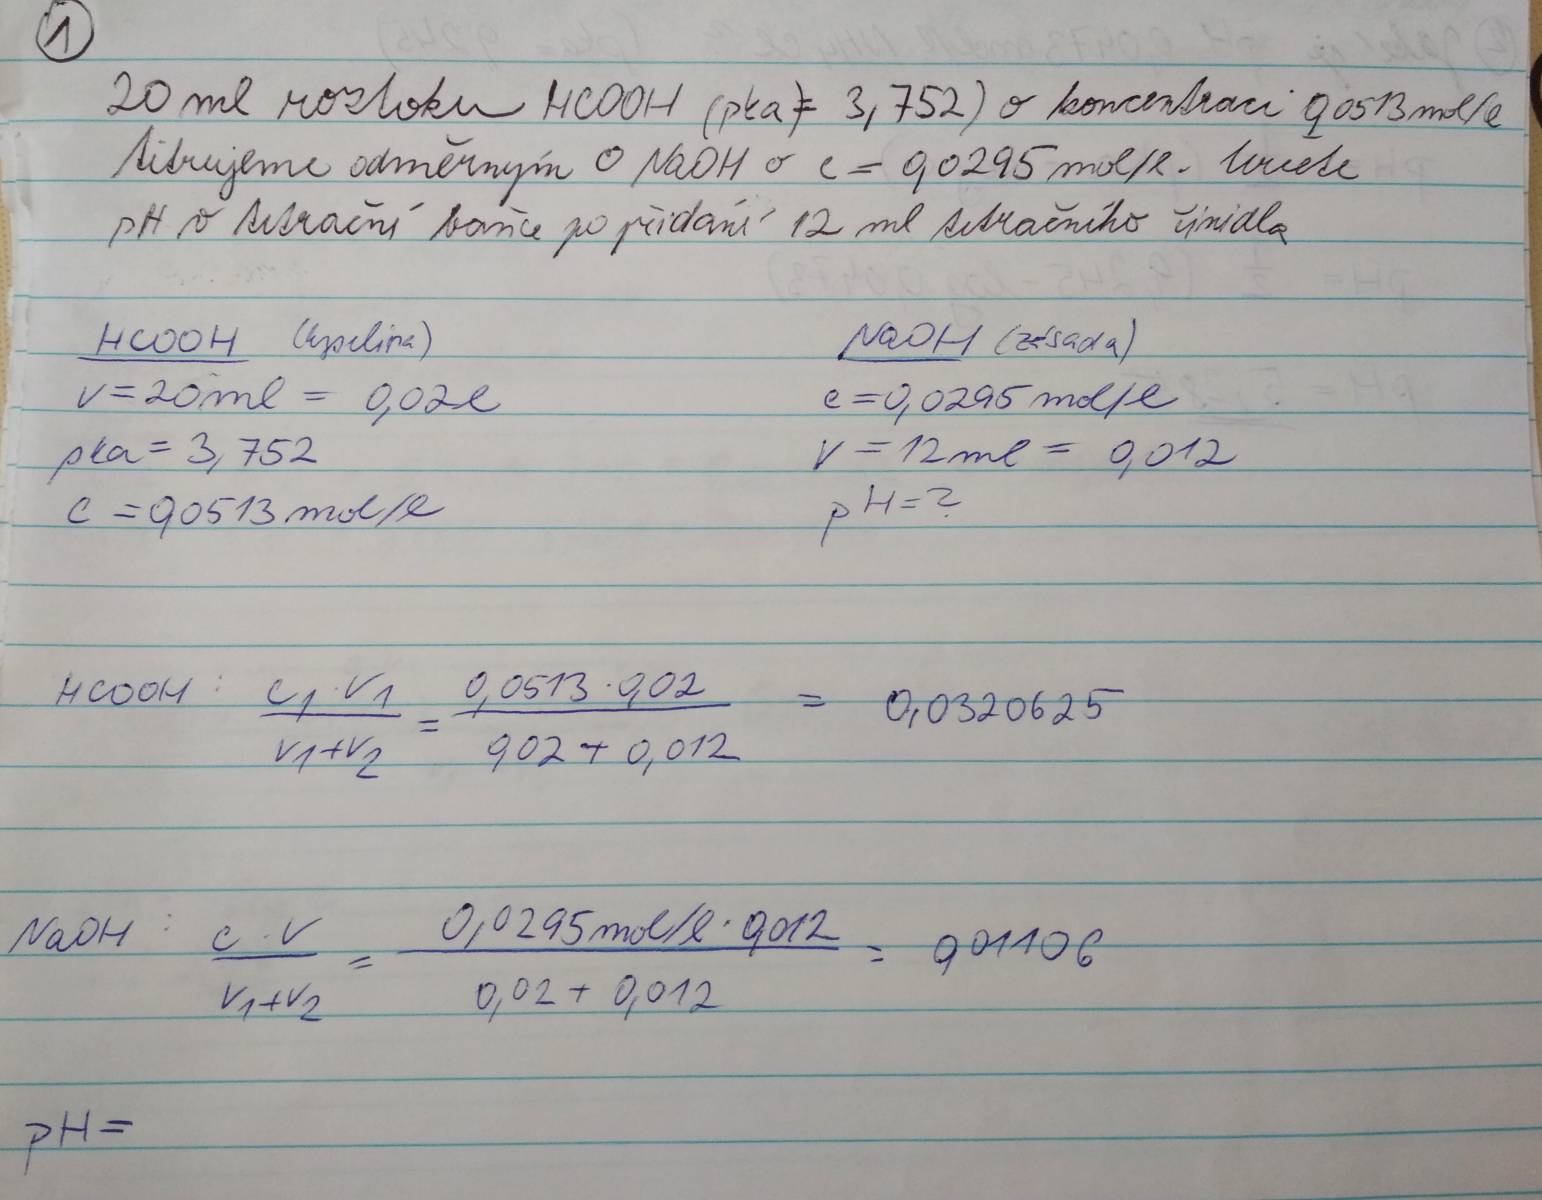 1
20 ml roztoku HCOOH (pka = 3,752) o koncentraci 0,0513 mol/l
titrujeme odměrným O NaOH o c = 0,0295 mol/l. Určete
pH v titrační baňce po přidání 12 ml titračního činidla
HCOOH (kyselina) NaOH (zásada)
V = 20 ml = 0,02 l c = 0,0295 mol/l
pka = 3,752 V = 12 ml = 0,012
c = 0,0513 mol/l pH = ?
HCOOH : c1 · V1 / V1 + V2 = 0,0513 · 0,02 / 0,02 + 0,012 = 0,0320625
NaOH : c · V / V1 + V2 = 0,0295 mol/l · 0,012 / 0,02 + 0,012 = 0,01106
pH =